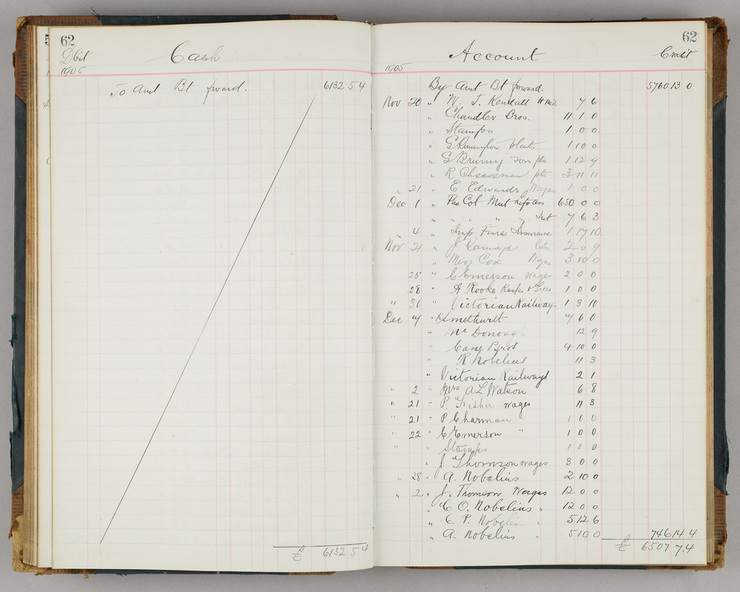 62
Dbit
Cash
1905
To Amt Bt forward. 6132 5 4
£ 6132 5 4
62
Account
Credit
1905
By Amt Bt forward. 5760 13 0
Nov 20 " W. J. Kendall 7 6
" Chandler Bros. 11 1 0
" Stamps 1 0 0
" G Rimington plants 1 10 0
" G Brunning 1 12 9
" R Cheeseman pts 3 11 11
" 21 - E Edwards Wages 1 0 0
Dec 1 " Pho Col Mut Life 650 0 0
" " " " " Int 7 6 3
" 4 " Imp Fire Insurance 1 17 10
Nov 21 " J Ramage 2 0 9
" Miss Cox Wages 3 10 0
25 " C Emerson wages 2 0 0
28 - A Rooke 1 0 0
" 30 " Victorian Railways 1 8 10
Dec 4 - Smethurst 7 6 0
- Mc Donough 12 9
- Cang Bros 4 10 0
- R Nobelius 11 3
Victorian Railways 2 1
" 2 - Mrs A L Watson 6 8
" 21 - P. Fisher wages 11 3
" 21 - P Charman " 1 6 0
" 22 - C Emerson " 1 0 0
" " Stamps 1 0 0
" J Thomson wages 3 0 0
" 28 - A. Nobelius 2 10 0
" 2 - J. Thomson Wages 12 0 0
" C. O. Nobelius " 12 0 0
" C. P. Nobelius " 5 12 6
" A. Nobelius " 5 10 0 746 14 4
£ 6507 7.4